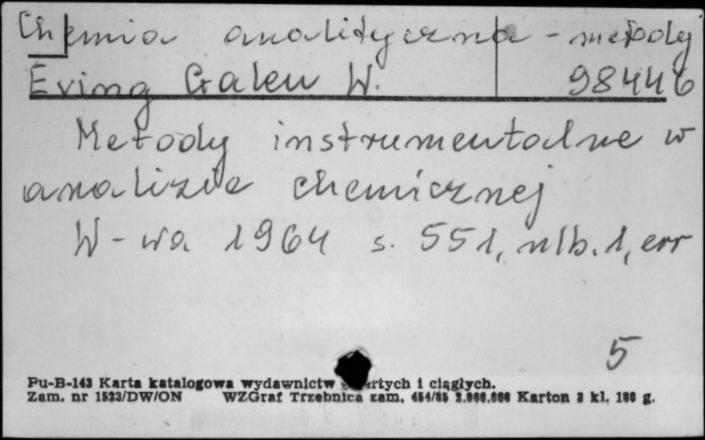 Chemia analityczna - metody
Eving Galen W. 98446
Metody instrumentalne w
analizie chemicznej
W-wa 1964 s. 551, nlb. 1, err
5
Pu-B-143 Karta katalogowa wydawnictw i ciągłych.
Zam. nr 1523/DW/ON WZGraf Trzebnica zam. 454/85 2.000.000 Karton 3 kl. 180 g.